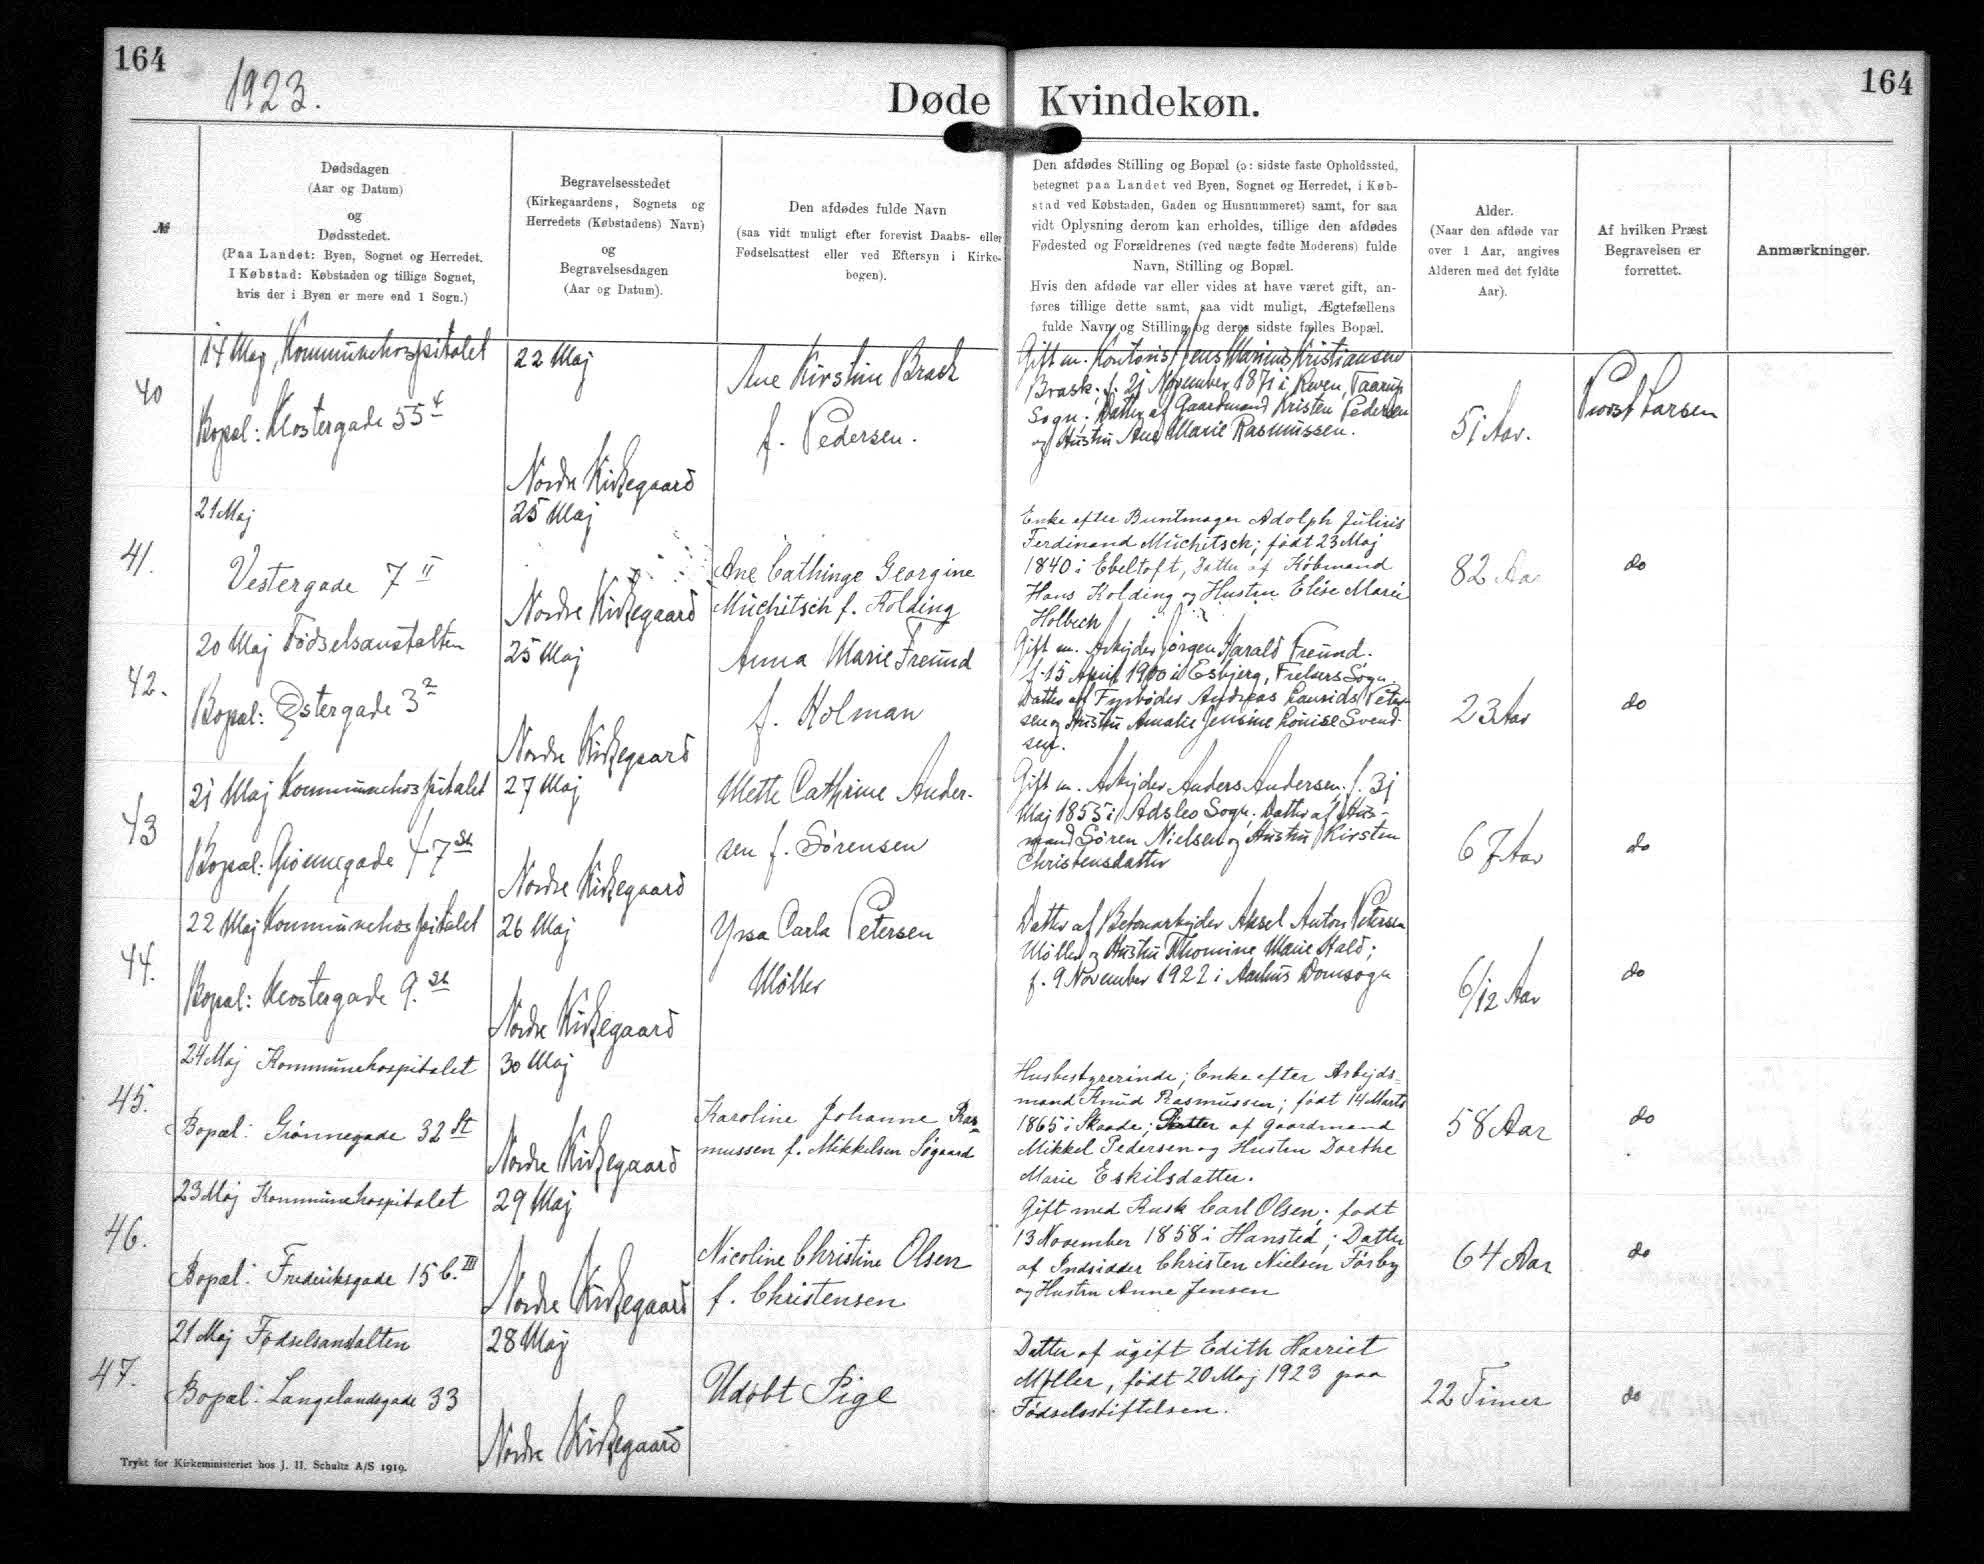 164
1923.
Døde
Kvindekøn.
164
№
Dødsdagen
(Aar og Datum)
og
Dødsstedet.
(Paa Landet: Byen, Sognet og Herredet.
I Købstad: Købstaden og tillige Sognet,
hvis der i Byen er mere end 1 Sogn.)
Begravelsesstedet
(Kirkegaardens, Sognets og
Herredets (Købstadens) Navn)
og
Begravelsesdagen
(Aar og Datum).
Den afdødes fulde Navn
(saa vidt muligt efter forevist Daabs- eller
Fødselsattest eller ved Eftersyn i Kirke-
bogen).
Den afdødes Stilling og Bopæl (ɔ: sidste faste Opholdssted,
betegnet paa Landet ved Byen, Sognet og Herredet, i Køb-
stad ved Købstaden, Gaden og Husnummeret) samt, for saa
vidt Oplysning derom kan erholdes, tillige den afdødes
Fødested og Forældrenes (ved uægte fødte Moderens) fulde
Navn, Stilling og Bopæl.
Hvis den afdøde var eller vides at have været gift, an-
føres tillige dette samt, saa vidt muligt, Ægtefællens
fulde Navn og Stilling og deres sidste fælles Bopæl.
Alder.
(Naar den afdøde var
over 1 Aar, angives
Alderen med det fyldte
Aar).
Af hvilken Præst
Begravelsen er
forrettet.
Anmærkninger.
40
14 Maj, Kommunehospitalet
Bopæl: Klostergade 55 4
22 Maj
Nordre Kirkegaard
Ane Kirstine Brask
f. Pedersen.
Gift m. Kontoris Jens Marinus Kristiansen
Brask; f. 21 November 1871 i Raven, Taarup
Sogn; Datter af Gaardmand Kristen Pedersen
og Hustru Ane Marie Rasmussen.
51 Aar.
Provst Larsen
41.
21 Maj
Vestergade 7 II
25 Maj
Nordre Kirkegaard
Ane Cathinge Georgine
Muchitsch f. Kolding
Enke efter Buntmager Adolph Julius
Ferdinand Muchitsch; født 23 Maj
1840 i Ebeltoft, Datter af Købmand
Hans Kolding og Hustru Elise Marie
Holbech
82 Aar
do
42.
20 Maj Fødselsanstalten
Bopæl: Østergade 3 2
25 Maj
Nordre Kirkegaard
Anna Marie Freund
f. Holman
Gift m. Arbejder Jørgen Harald Freund.
f. 15 April 1900 i Esbjerg, Frelsers Sogn.
Datter af Fyrbøder Andreas Laurids Peter-
sen og Hustru Amalie Jensine Louise Svend-
sen.
23 Aar
do
43
21 Maj Kommunehospitalet
Bopæl: Grønnegade 47 st
27 Maj
Nordre Kirkegaard
Mette Cathrine Ander-
sen f. Sørensen
Gift m. Arbejder Anders Andersen; f. 31
Maj 1855 i Adslev Sogn; Datter af Hus-
mand Søren Nielsen og Hustru Kirsten
Christensdatter
67 Aar
do
44.
22 Maj Kommunehospitalet
Bopæl: Klostergade 9. st
26 Maj
Nordre Kirkegaard
Yrsa Carla Petersen
Møller
Datter af Betonarbejder Aksel Anton Petersen
Møller og Hustru Thomine Marie Hald;
f. 9 November 1922 i Aarhus Domsogn
6/12 Aar
do
45.
24 Maj Kommunehospitalet
Bopæl: Grønnegade 32 St
30 Maj
Nordre Kirkegaard
Karoline Johanne Ras-
mussen f. Mikkelsen Søgaard
Husbestyrerinde; Enke efter Arbejds-
mand Knud Rasmussen; født 14 Marts
1865 i Skaade; Datter af Gaardmand
Mikkel Pedersen og Hustru Dorthe
Marie Eskilsdatter.
58 Aar
do
46.
23 Maj Kommunehospitalet
Bopæl: Frederiksgade 15 b. III
29 Maj
Nordre Kirkegaard
Nicoline Christine Olsen
f. Christensen
Gift med Kusk Carl Olsen; født
13 November 1858 i Hansted; Datter
af Indsidder Christen Nielsen Førby
og Hustru Anne Jensen
64 Aar
do
47.
21 Maj Fødselsanstalten
Bopæl: Langelandsgade 33
28 Maj
Nordre Kirkegaard
Udøbt Pige
Datter af ugift Edith Harriet
Møller, født 20 Maj 1923 paa
Fødselsstiftelsen.
22 Timer
do
Trykt for Kirkeministeriet hos J. H. Schultz A/S 1919.